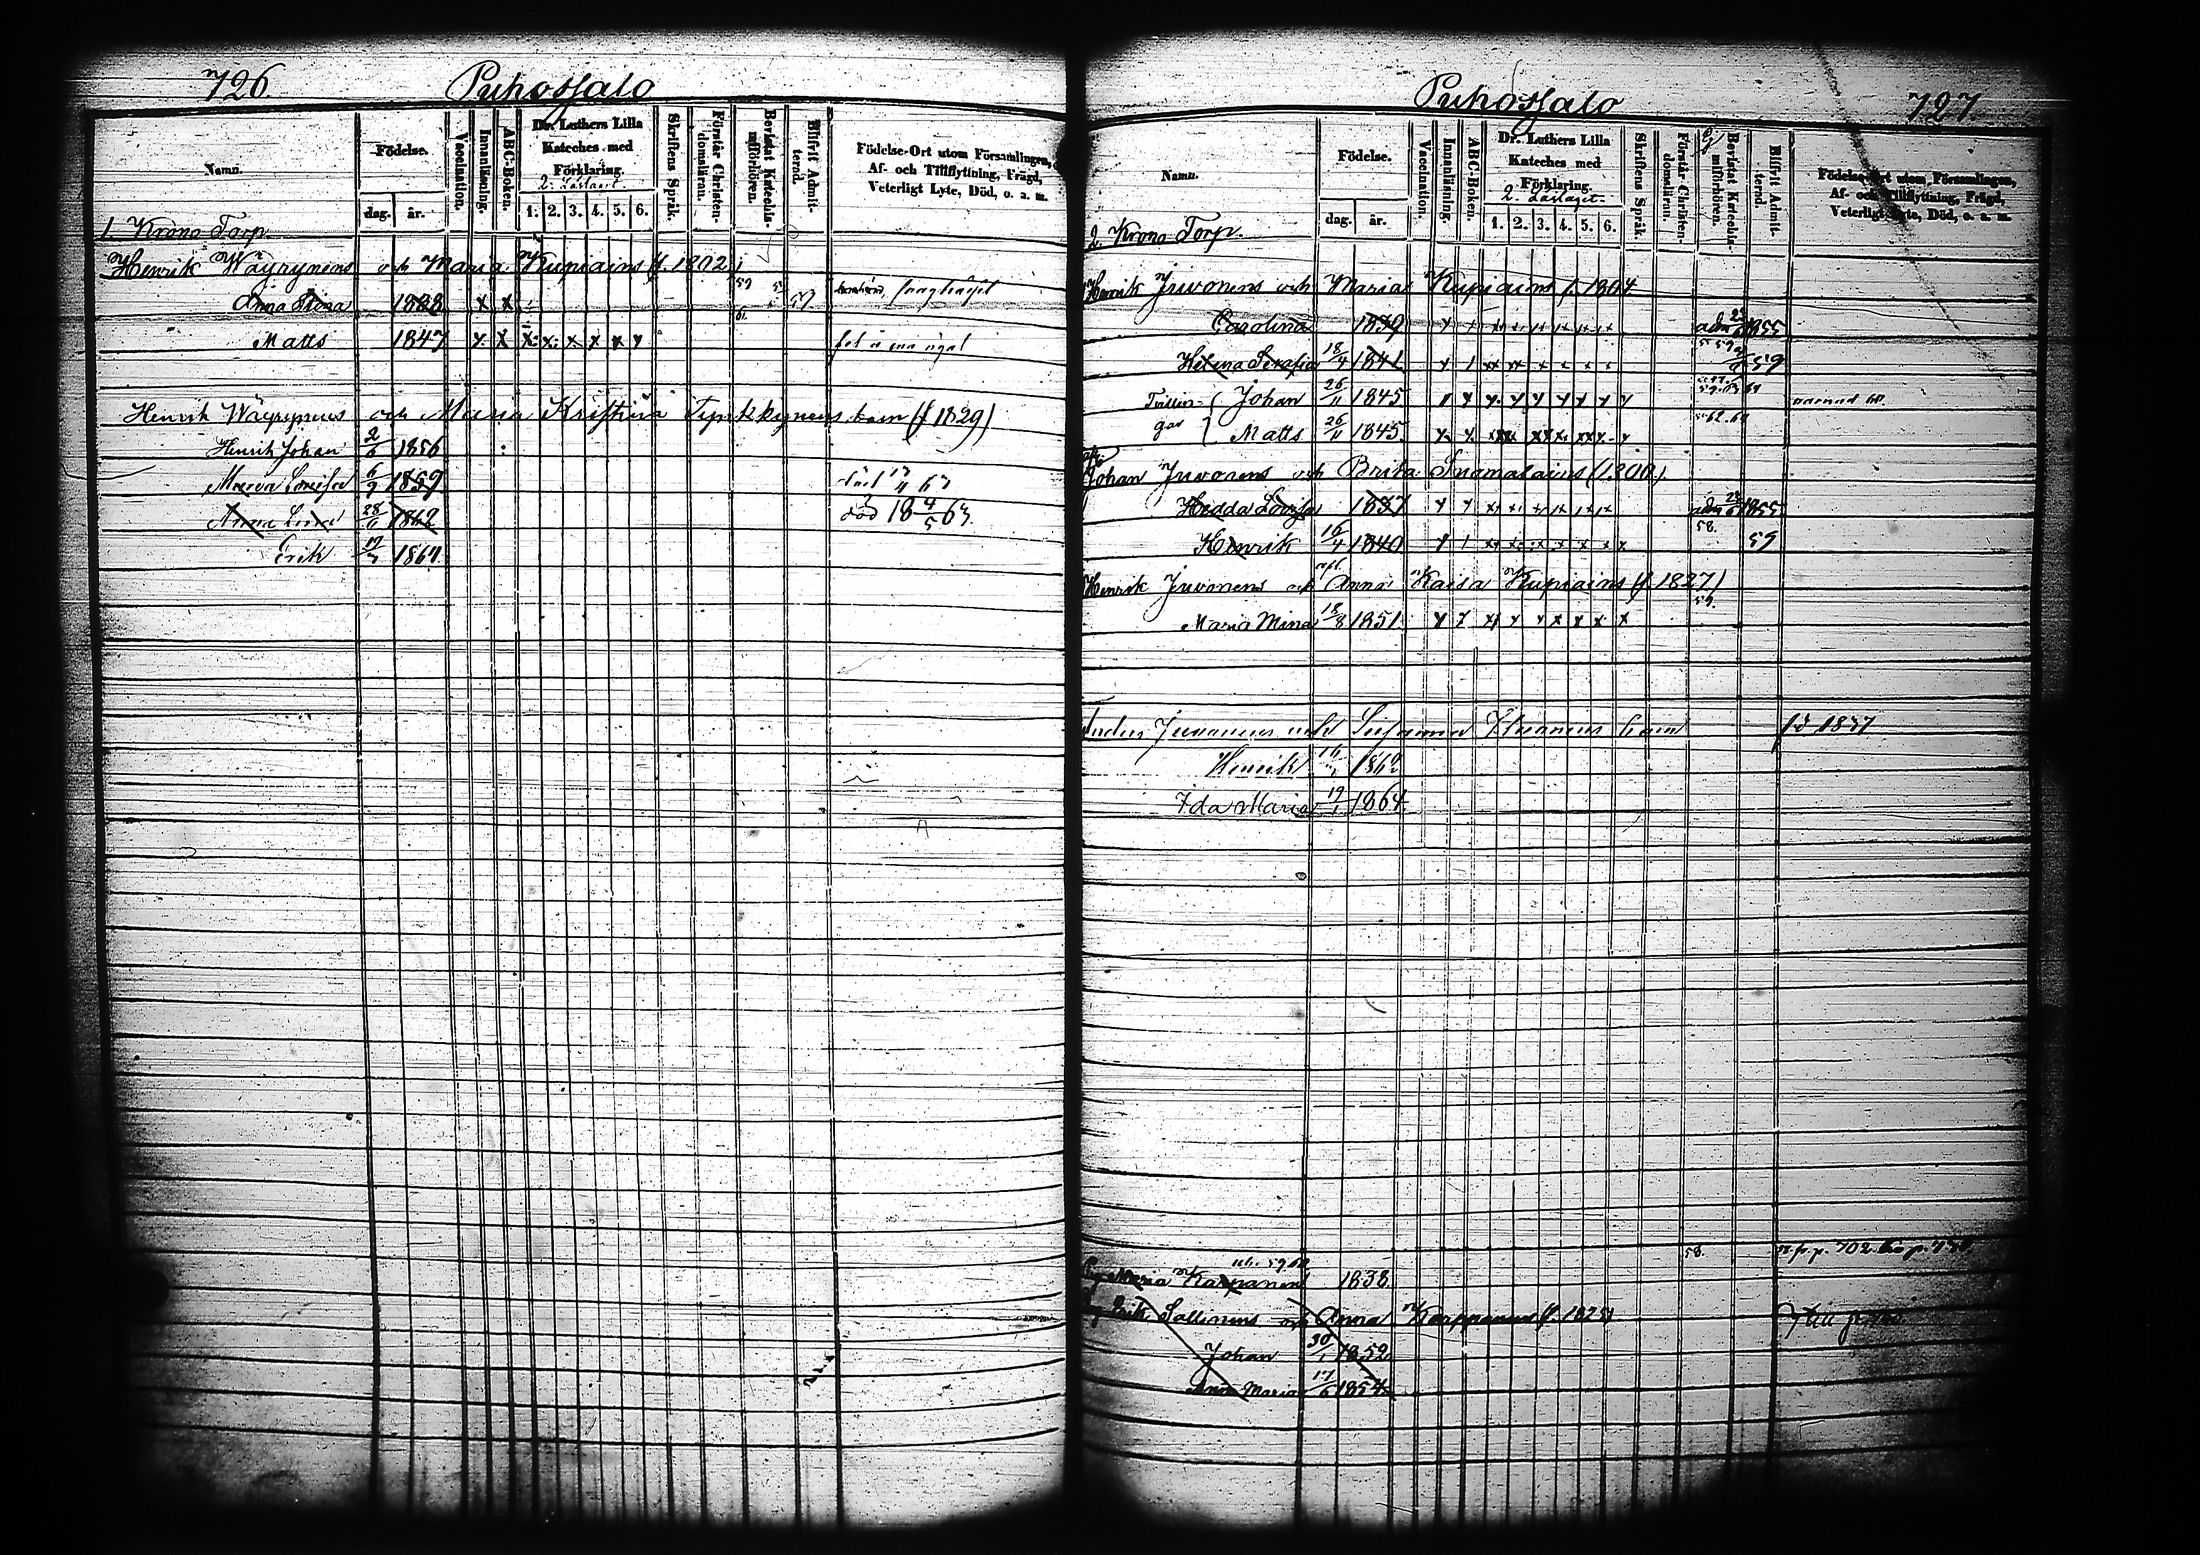 726.
Puhossalo
Namn.
Födelse.
dag.
år.
Vaccination.
Innanläsning.
ABC-Boken.
Dr. Luthers Lilla
Kateches med
Förklaring.
2. Läslaget
1. 2. 3. 4. 5. 6.
Skriftens Språk.
Förstår Christen-
domsläran.
Bevistat Katechis-
miförhören.
Blifvit Admit-
terad.
Födelse-Ort utom Församlingen,
Af- och Tillflyttning, Frägd,
Veterligt Lyte, Död, o. s. m.
1. Krono Torp.
Henrik Wäyrynens och Maria Kupiains (f. 1802)
Anna Stina 1838 x x 59
Matts 1847 x x x x x x x x
Henrik Wäyrynens och Maria Kristina barn (f 1829)
Henrik Johan 2/6 1856
Maria Lovisa 6/9 1859
28/11 1862 död 18 4/5 63.
Erik 1864.
Puhossalo
727.
Namn.
Födelse.
dag.
år.
Vaccination.
Innanläsning.
ABC-Boken.
Dr. Luthers Lilla
Kateches med
Förklaring.
2. Läslaget.
1. 2. 3. 4. 5. 6.
Skriftens Språk.
Förstår Christen-
domsläran.
Bevistat Katechis-
miförhören.
Blifvit Admit-
terad.
Födelse-Ort utom Församlingen,
Af- och Tillflyttning, Frägd,
Veterligt Lyte, Död, o. s. m.
2. Krono Torp.
Henrik Juvonens och Marias Kupiains f. 1804
Carolina 1839 adm 1855
Helena Serafia 18/4 1841 59
Tvillin- Johan 26/11 1845
gar Matts 26/11 1845 62.64
Johan Juvonens och Brita (1800.)
Hedda Lovisa 1837 adm 1855
Henrik 16/4 1840 58. 59
Henrik Juvonens och Anna Kaisa Kupiains (f. 1827)
Maria Mina 18/8 1851 59.
Juvonens och barn 1837
Henrik 1862
Ida Maria 19/1 1864
58.
Maria 1838
Erik Sallinens och Anna Karppanens (f. 1825)
Johan 30/1 1852
Anna Maria 17/6 1854